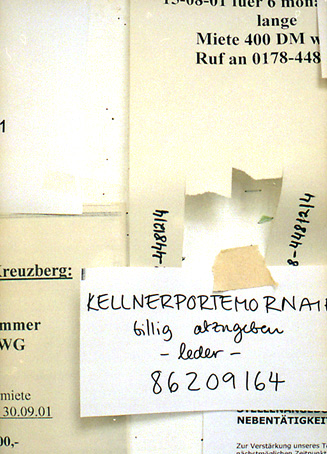 15-08-01 fuer 6 mon
lange
Miete 400 DM w
Ruf an 0178-448
-4481214
8-4481214
Kreuzberg:
mmer
WG
miete
30.09.01
00,-
KELLNERPORTEMORNAI
billig abzugeben
- leder -
86209164
NEBENTÄTIGKEIT
Zur Verstärkung unseres T
nächstmöglichen Zeitpunkt